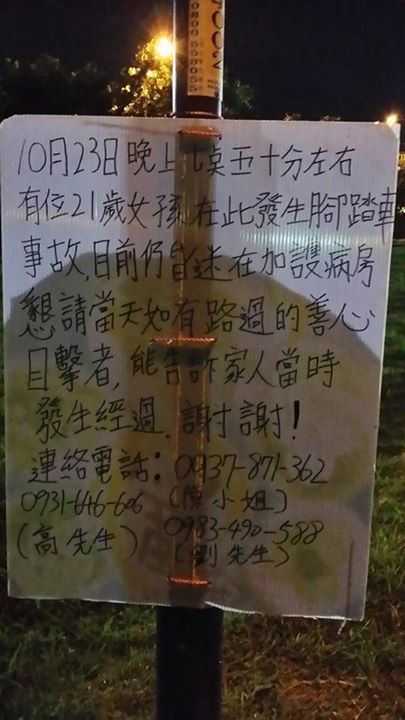 4002
10月23日晚上七點五十分左右
有位21歲女孩在此發生腳踏車
事故,目前仍昏迷在加護病房
懇請當天如有路過的善心、
目擊者,能告訴家人當時
發生經過.謝謝!
連絡電話:0937-871-362
0931-646-606 (陳小姐)
(高先生) 0983-490-588
(劉先生)